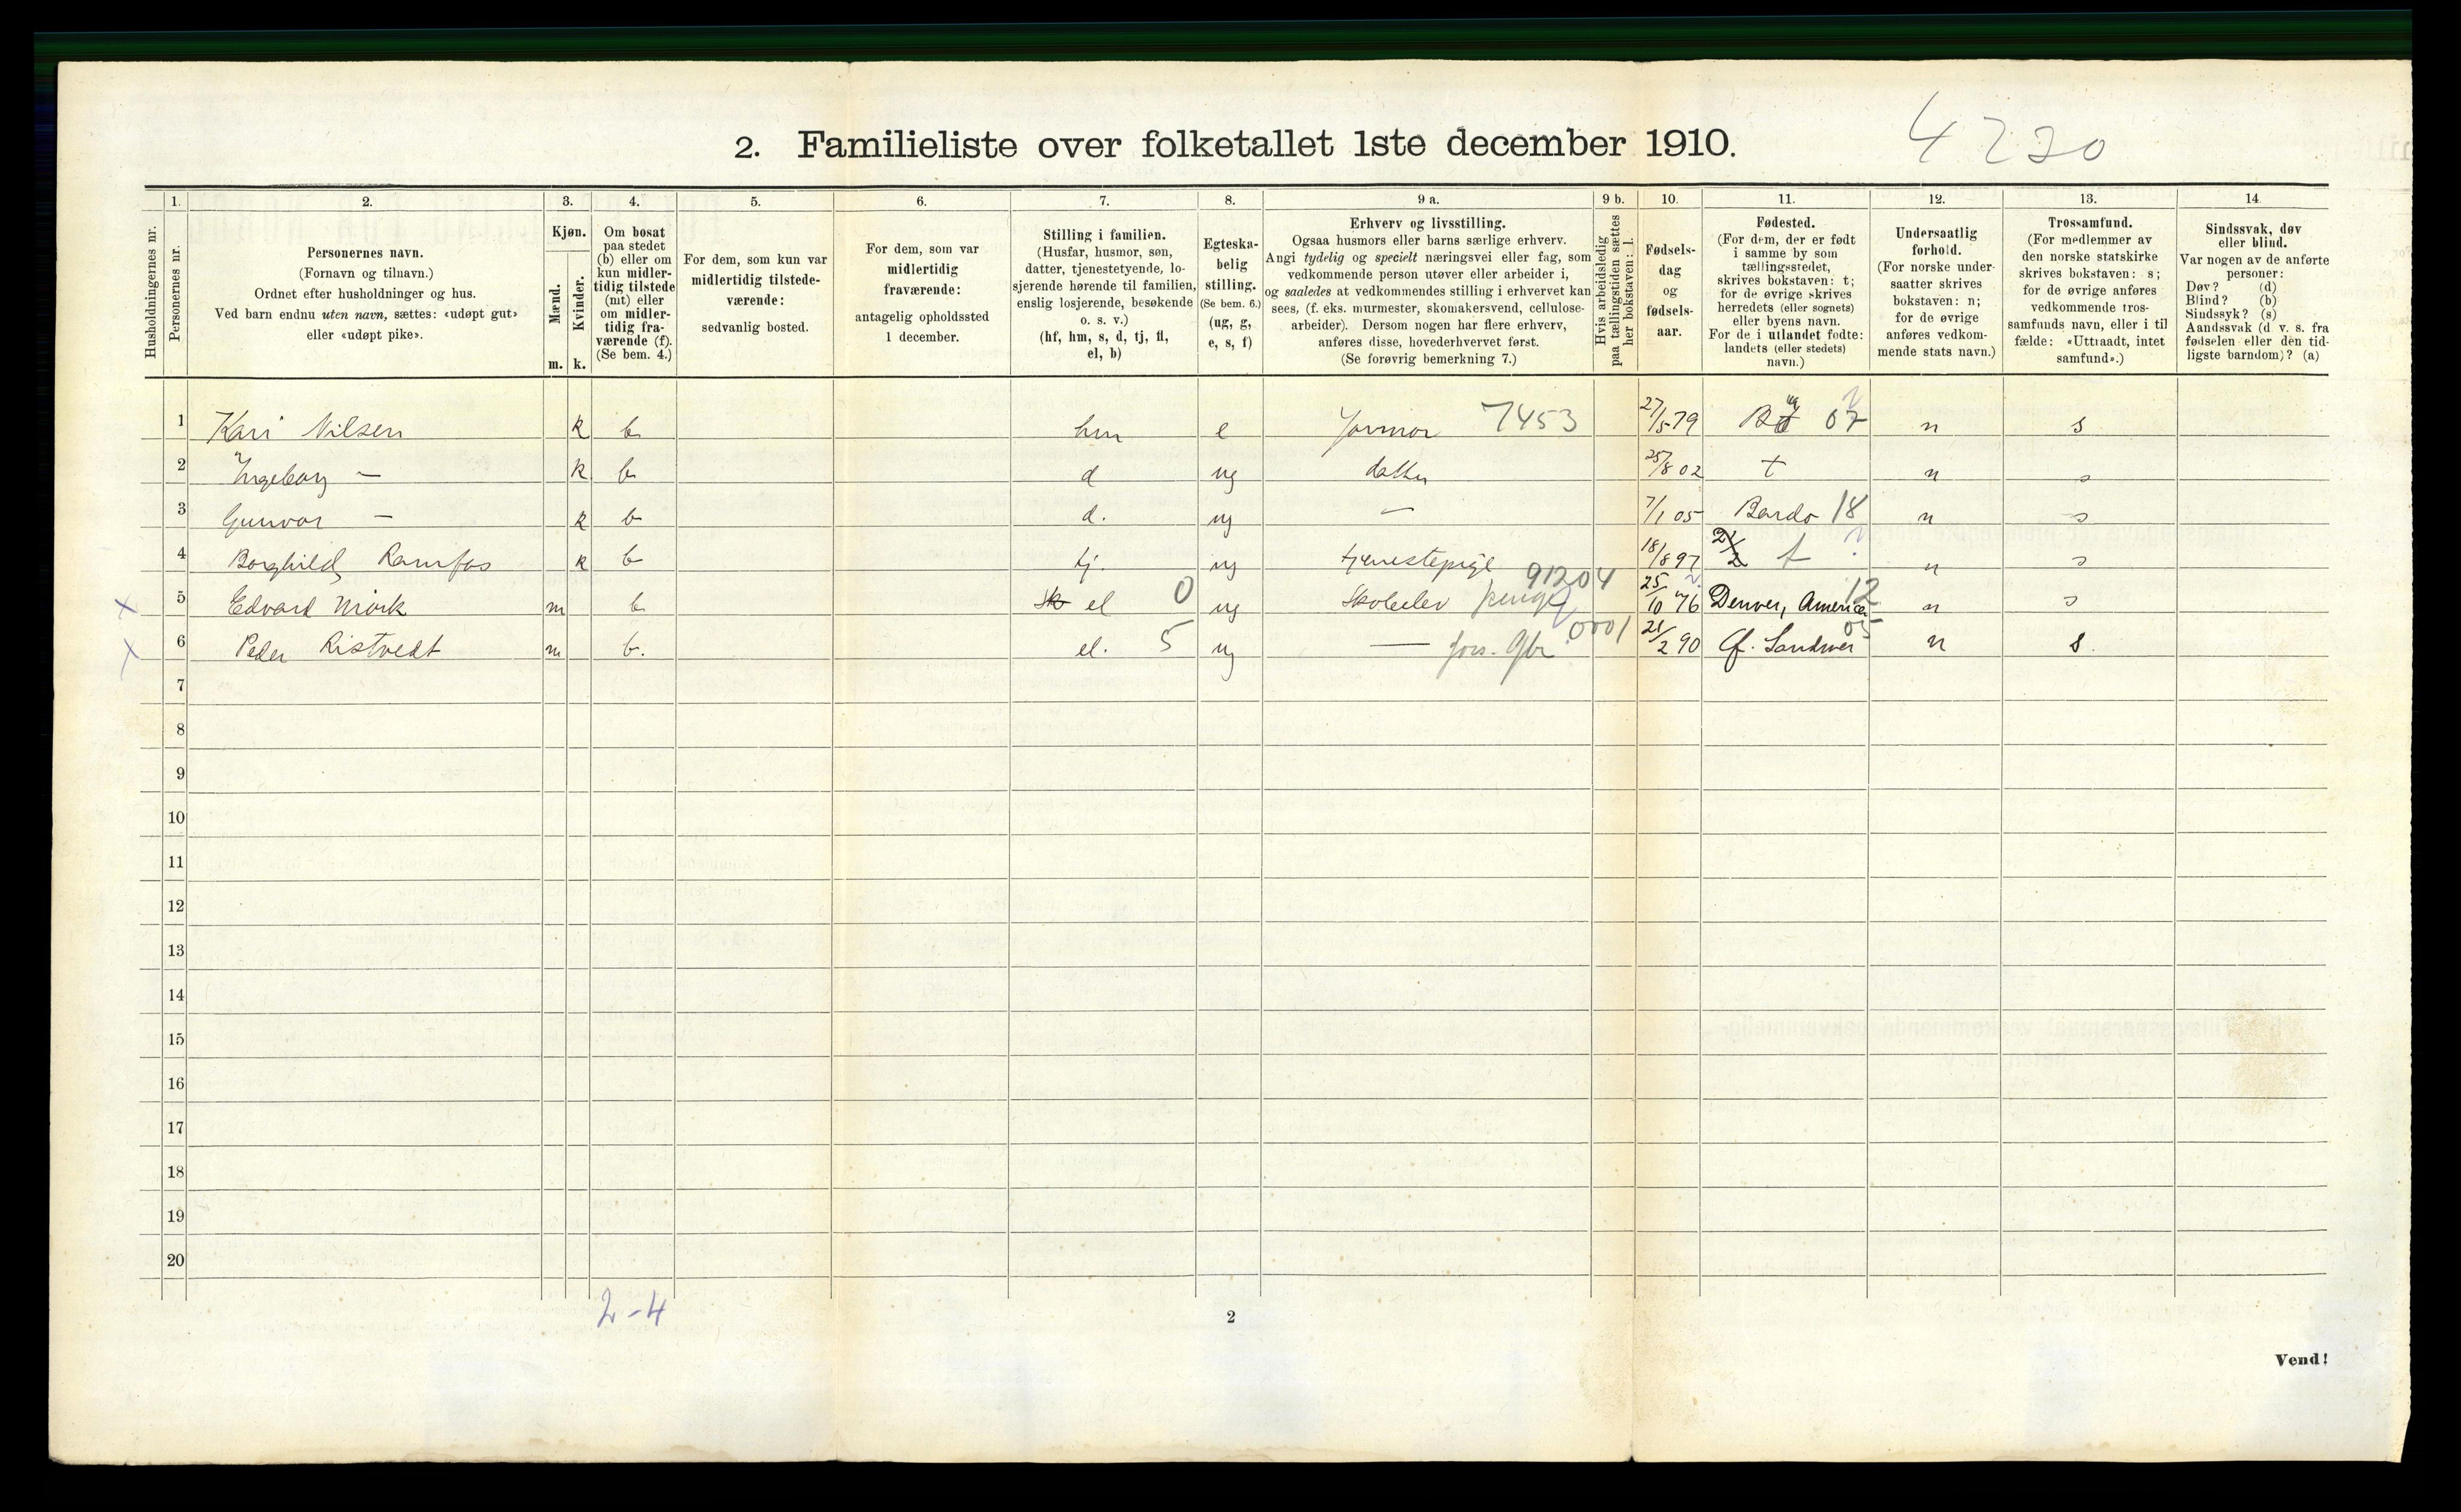 2. Familieliste over folketallet 1ste december 1910.
4220
1. 2. 3. 4. 5. 6. 7. 8. 9 a. 9 b. 10. 11. 12. 13. 14
Husholdningernes nr.
Personernes nr.
Personernes navn.
(Fornavn og tilnavn.)
Ordnet efter husholdninger og hus.
Ved barn endnu uten navn, sættes: «udøpt gut»
eller «udøpt pike».
Kjøn.
Mænd.
Kvinder.
m. k.
Om bosat
paa stedet
(b) eller om
kun midler-
tidig tilstede
(mt) eller
om midler-
tidig fra-
værende (f).
(Se bem. 4.)
For dem, som kun var
midlertidig tilstede-
værende:
sedvanlig bosted.
For dem, som var
midlertidig
fraværende:
antagelig opholdssted
1 december.
Stilling i familien.
(Husfar, husmor, søn,
datter, tjenestetyende, lo-
sjerende hørende til familien,
enslig losjerende, besøkende
o. s. v.)
(hf, hm, s, d, tj, fl,
el, b)
Egteska-
belig
stilling.
(Se bem. 6.)
(ug, g,
e, s, f)
Erhverv og livsstilling.
Ogsaa husmors eller barns særlige erhverv.
Angi tydelig og specielt næringsvei eller fag, som
vedkommende person utøver eller arbeider i,
og saaledes at vedkommendes stilling i erhvervet kan
sees, (f. eks. murmester, skomakersvend, cellulose-
arbeider). Dersom nogen har flere erhverv,
anføres disse, hovederhvervet først.
(Se forøvrig bemerkning 7.)
Hvis arbeidsledig
paa tællingstiden sættes
her bokstaven: l.
Fødsels-
dag
og
fødsels-
aar.
Fødested.
(For dem, der er født
i samme by som
tællingsstedet,
skrives bokstaven: t;
for de øvrige skrives
herredets (eller sognets)
eller byens navn.
For de i utlandet fødte:
landets (eller stedets)
navn.)
Undersaatlig
forhold.
(For norske under-
saatter skrives
bokstaven: n;
for de øvrige
anføres vedkom-
mende stats navn.)
Trossamfund.
(For medlemmer av
den norske statskirke
skrives bokstaven: s;
for de øvrige anføres
vedkommende tros-
samfunds navn, eller i til
fælde: «Uttraadt, intet
samfund».)
Sindssvak, døv
eller blind.
Var nogen av de anførte
personer:
Døv? (d)
Blind? (b)
Sindssyk? (s)
Aandssvak (d v. s. fra
fødselen eller den tid-
ligste barndom)? (a)
1 Kari Nilsen k b hm e Jormor 7453 27/5 79 07 n s
2 Ingeborg — k b d ug datter 25/8 02 t n s
3 Gunvor — k b d. ug — 7/1 05 Bardo 18 n s
4 Borghild Ramfos k b tj. ug tjenestepige 18/8 97 t n s
5 Edvard Mørk m b el 0 ug Skoleelev penge 91204 25/10 76 Denver, America 12 n s
6 Peder Ristvedt m b. el. 5 ug — fors. Gbr 0001 21/2 90 Gf. Sandsvær 05 n s.
7
8
9
10
11
12
13
14
15
16
17
18
19
20
2-4
2
Vend!